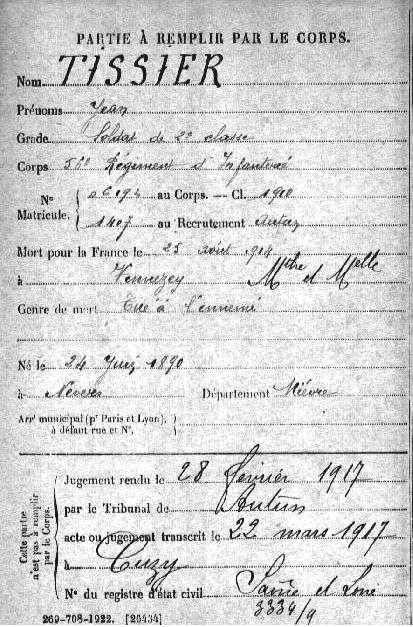 PARTIE À REMPLIR PAR LE CORPS.
Nom TISSIER
Prénoms Jean
Grade Soldat de 2e classe
Corps 56e Régiment d'Infanterie
N° Matricule. { 06194 au Corps. — Cl. 1910
1407 au Recrutement Autun
Mort pour la France le 25 août 914
à Vennezey Mthe et Mlle
Genre de mort Tué à l'ennemi
Né le 24 Juin 1890
à Nevers Département Nièvre
Arrt municipal (pr Paris et Lyon), à défaut rue et N°. }
Cette partie n'est pas à remplir par le Corps. {
Jugement rendu le 28 février 1917
par le Tribunal de Autun
acte ou jugement transcrit le 22 mars 1917
à Cuzy
N° du registre d'état civil Saône et Loire
3334/9
269-708-1922. [26434]